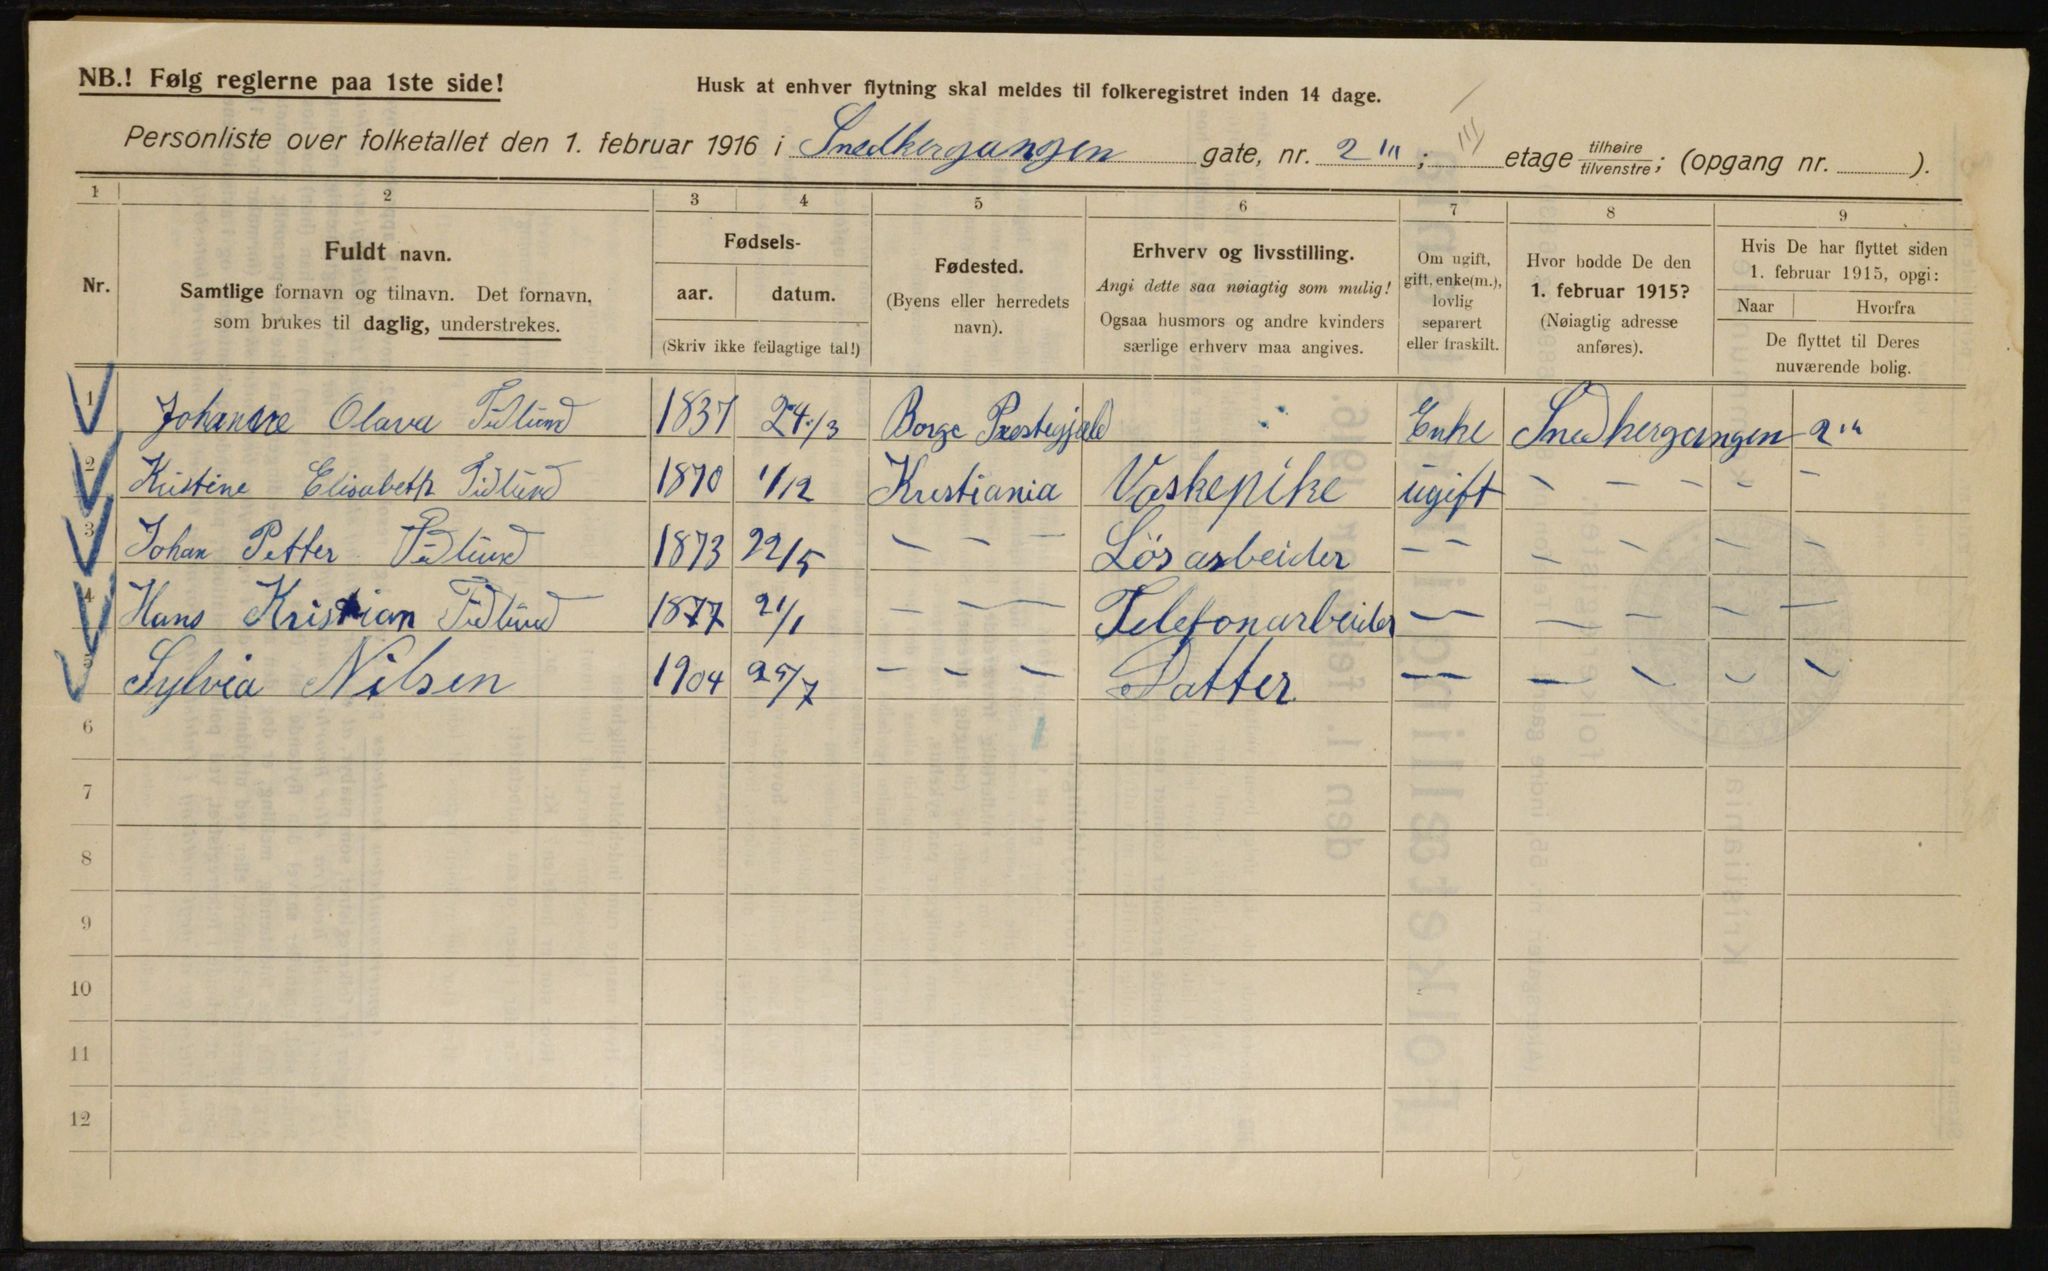 NB.! Følg reglerne paa 1ste side!
Husk at enhver flytning skal meldes til folkeregistret inden 14 dage.
Personliste over folketallet den 1. februar 1916 i Snedkergangen gate, nr. 2 III; III etage tilhøire/tilvenstre; (opgang nr. ).
1 2 3 4 5 6 7 8 9
Nr.
Fuldt navn.
Samtlige fornavn og tilnavn. Det fornavn,
som brukes til daglig, understrekes.
Fødsels-
aar. datum.
(Skriv ikke feilagtige tal!)
Fødested.
(Byens eller herredets
navn).
Erhverv og livsstilling.
Angi dette saa nøiagtig som mulig!
Ogsaa husmors og andre kvinders
særlige erhverv maa angives.
Om ugift,
gift, enke(m.),
lovlig
separert
eller fraskilt.
Hvor bodde De den
1. februar 1915?
(Nøiagtig adresse
anføres).
Hvis De har flyttet siden
1. februar 1915, opgi:
Naar Hvorfra
De flyttet til Deres
nuværende bolig.
1 Johanne Olava Tidlund 1837 24/3 Borge Prestegjæld Enke Snedkergangen 2 III
2 Kristine Elisabeth Tidlund 1870 1/12 Kristiania Vaskepike ugift – – – – – –
3 Johan Petter Tidlund 1873 22/5 – – – Lösarbeider – – – – – –
4 Hans Kristian Tidlund 1877 21/1 – – – Telefonarbeider – – – – –
5 Sylvia Nilsen 1904 25/7 – – – Datter – – – – – –
6
7
8
9
10
11
12